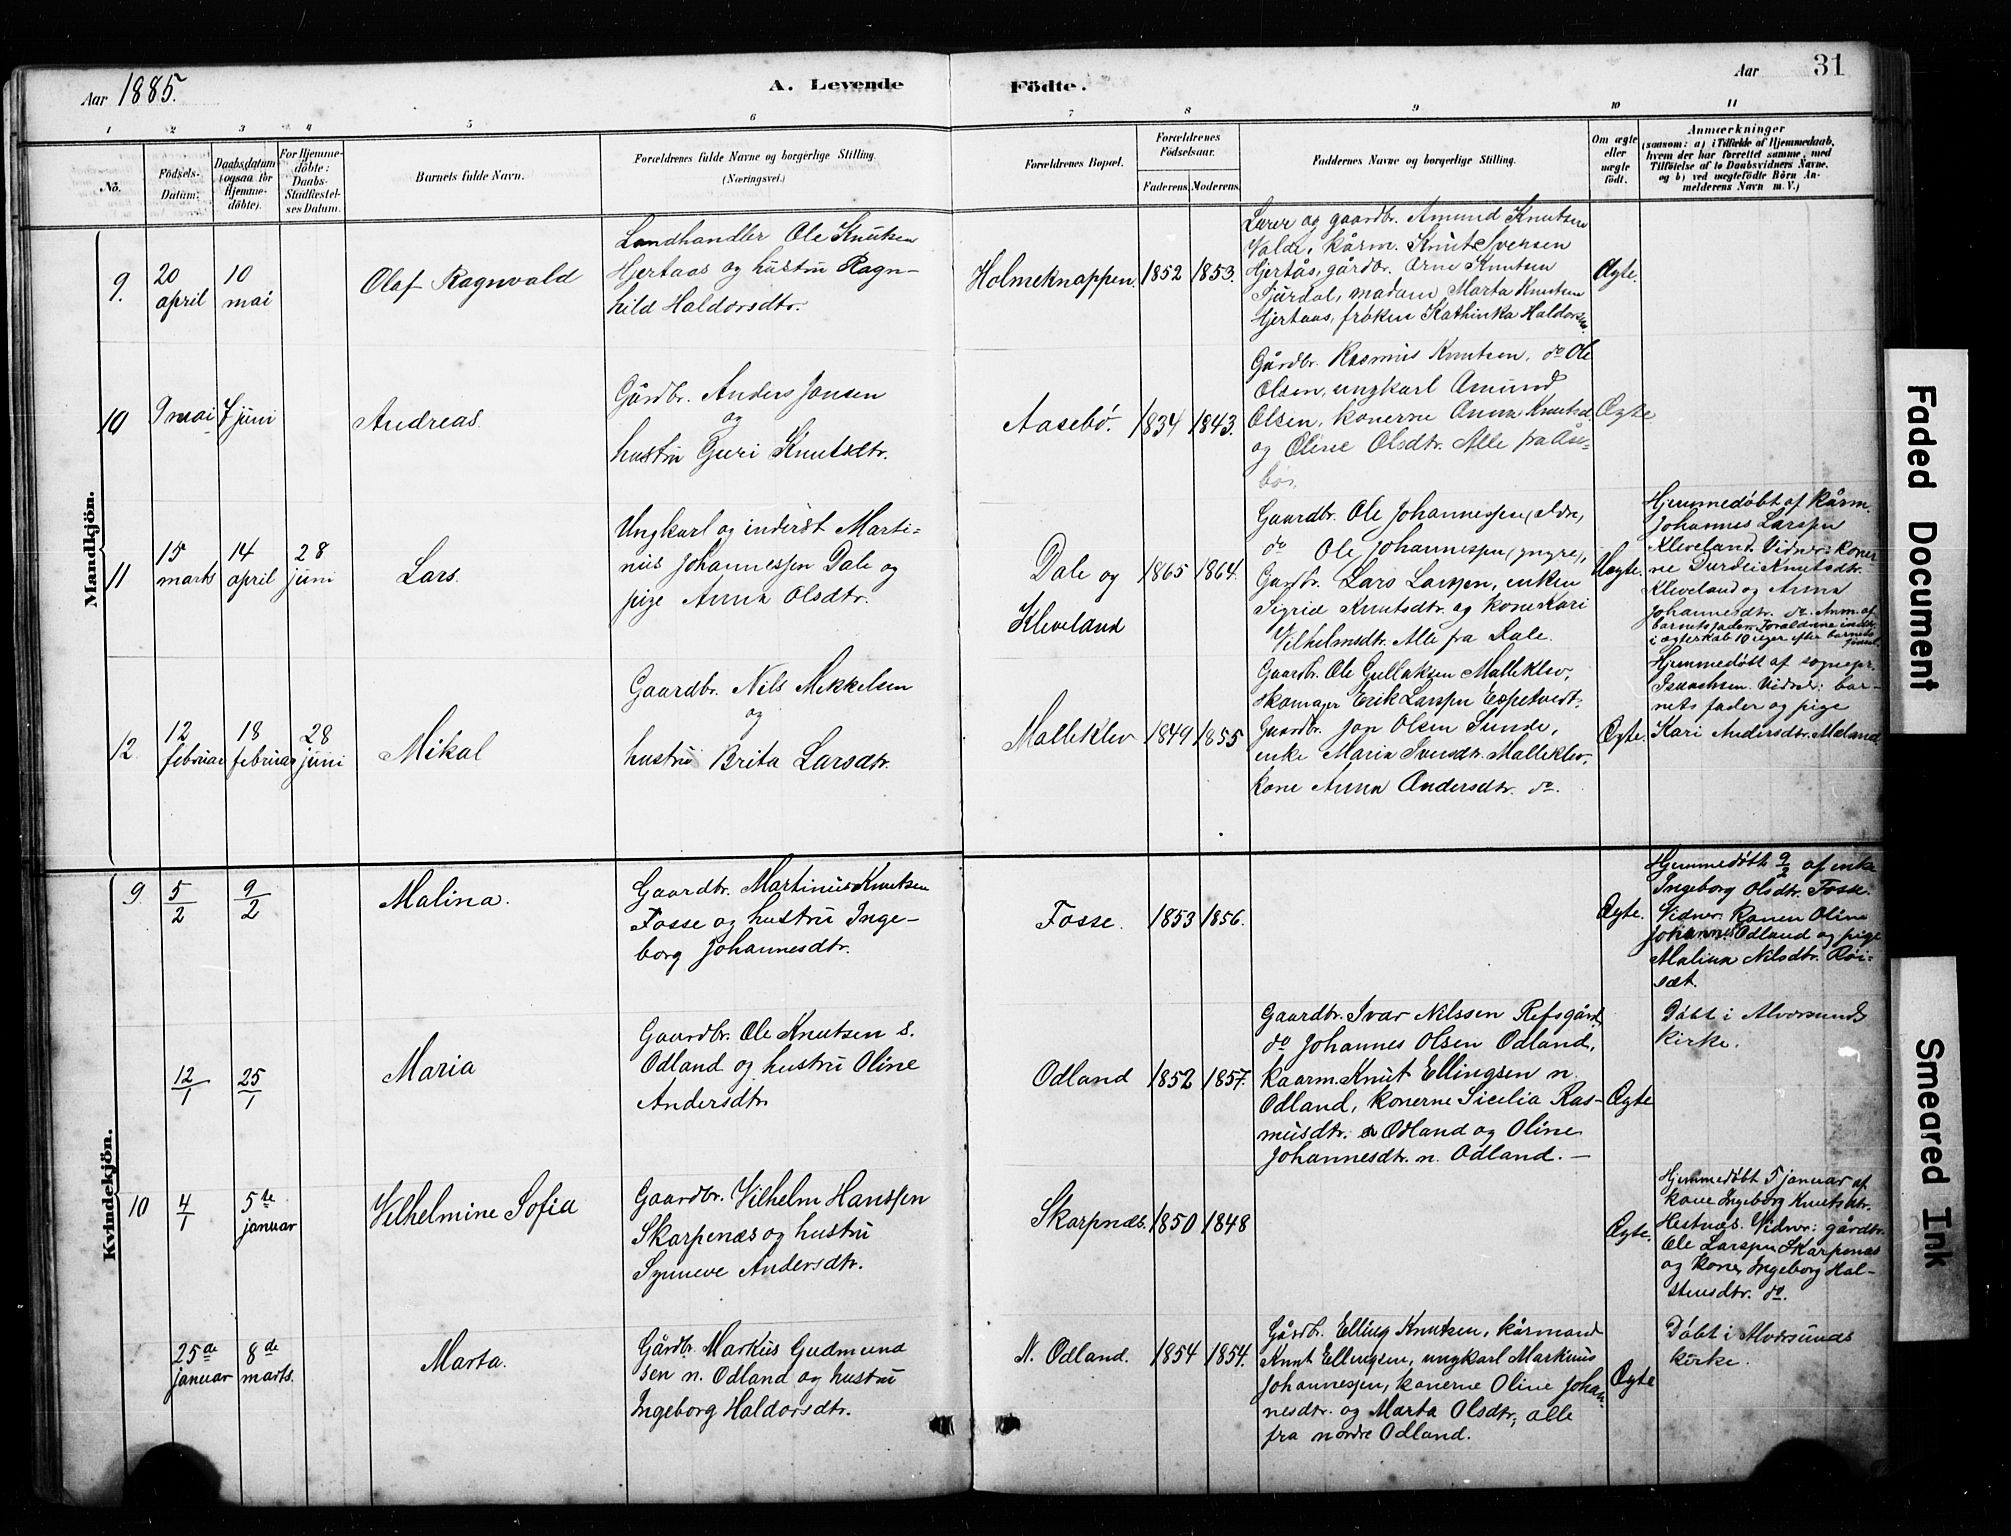 Aar 1885.
A. Levende
Födte.
Aar
31
1 2 3 4 5 6 7 8 9 10 11
No.
Födsels-Datum:
Daabsdatum (ogsaa for Hjemme-döbte).
For Hjemme-döbte: Daabs-Stadfæstel-ses Datum.
Barnets fulde Navn.
Forældrenes fulde Navne og borgerlige Stilling.
(Næringsvei.)
Forældrenes Bopæl.
Forældrenes Födselsaar.
Faderens. Moderens.
Faddernes Navne og borgerlige Stilling.
Om ægte eller uægte födt.
Anmærkninger
(saasom: a) i Tilfælde af Hjemmedaab,
hvem der har forrettet samme, med
Tilföielse af to Daabsvidners Navne.
og b) ved uægtefödte Börn An-
melderens Navn m. V.)
Mandkjön.
9. 20 april 10 mai Olaf Ragnvald
Landhandler Ole Knutsen
Hjertaas og hustru Ragn-
hild Haldorsdtr.
Holmeknappen 1852 1853.
Lærer og gaardbr. Amund Knutsen
Valde, kårm. Knut Iversen
Hjertås, gårdbr. Arne Knutsen
Fjurdal, madam Marta Knutsen
Hjertaas, frøken Kathinka Haldorsen.
Ægte.
10 9 mai 7 juni Andreas.
Gårdbr. Anders Jansen
og
hustru Guri Knutsdtr.
Aasebø. 1834 1843.
Gårdbr. Rasmus Knutsen, do Ole
Olsen, ungkarl Amund
Olsen, konerne Anna Knutsd.
og Oline Olsdtr. Alle fra Åse-
bø.
Ægte
11 15 marts 14 april 28 juni Lars.
Ungkarl og inderst Marti-
nus Johannessen Dale og
pige Anna Olsdtr.
Dale og
Kleveland
1865 1864.
Gaardbr. Ole Johannessen (eldre,
do Ole Johannessen (yngre),
Gardbr. Lars Larssen, enken
Sigrid Knutsdtr. og kone Kari
Vilhelmsdtr. Alle fra Dale.
Uægte.
Hjemmedøbt af kårm.
Johannes Larssen
Kleveland. Vidner: koner-
ne Durdei Knutsdtr.
Kleveland og Anna
Johannesdtr. do. Anm. af
barnets fader. Foræld̄rne indtr.
i ægteskab 10 uger efter barnets
fødsel.
12. 12 februar 18 februar 28 juni Mikal
Gaardbr. Nils Mikkelsen
og
hustru Brita Larsdtr.
Malleklev 1849 1855
Gaardbr. Ole Gullaksen Malleklev,
skomager Erik Larssen Espetvedt.
Gaardbr. Jon Olsen Sunde,
enke Maria Ivensdtr. Malleklev,
kone Anna Andersdtr. do.
Ægte.
Hjemmedøbt af sognepr.
Isaachsen. Vidner: bar-
nets fader og pige
Kari Andersdtr. Mæland
Kvindekjön.
9. 5/2 9/2 Malina.
Gaardbr. Martinus Knutsen
Fosse og hustru Inge-
borg Johannesdtr.
Fosse. 1853 1856.
Ægte.
Hjemmedøbt 9/2 af enke
Ingeborg Olsdtr. Fosse.
Vidner: konen Oline
Johannes Odland og pige
Malina Nilsdtr. Røi-
sæt.
12/1 25/1 Maria
Gaardbr. Ole Knutsen s.
Odland og hustru Oline
Andersdtr.
Odland 1852 1857.
Gaardbr. Ivar Nilssen Refsgård
do Johannes Olsen Odland,
kaarm. Knut Ellingsen n.
Odland, konerne Sicilia Ras-
musdtr. s Odland og Oline
Johannesdtr. n. Odland. —
Ægte
Døbt i Alversunds
kirke.
10 4/1 5te januar Vilhelmine Sofia
Gaardbr. Vilhelm Hanssen
Skarpenæs og hustru
Synneve Andersdtr.
Skarpnæs. 1850 1848
Ægte.
Hjemmedøbt 5 januar af
kone Ingeborg Knutsdtr.
Hestnæs. Vidner: gårdbr.
Ole Larssen Skarpenæs
og kone Ingeborg Hal-
stensdtr. do.
25de januar 8de marts. Marta.
Gårdbr. Markus Gudmund
sen n. Odland og hustru
Ingeborg Haldorsdtr.
N. Odland. 1854 1854.
Gårdbr. Elling Knutsen, kårmand
Knut Ellingsen, ungkarl Markus
Johannessen, konerne Oline Johan-
nesdtr. og Marta Olsdtr, alle
fra nordre Odland.
Ægte
Døbt i Alversunds
kirke.
Faded Document
Smeared Ink